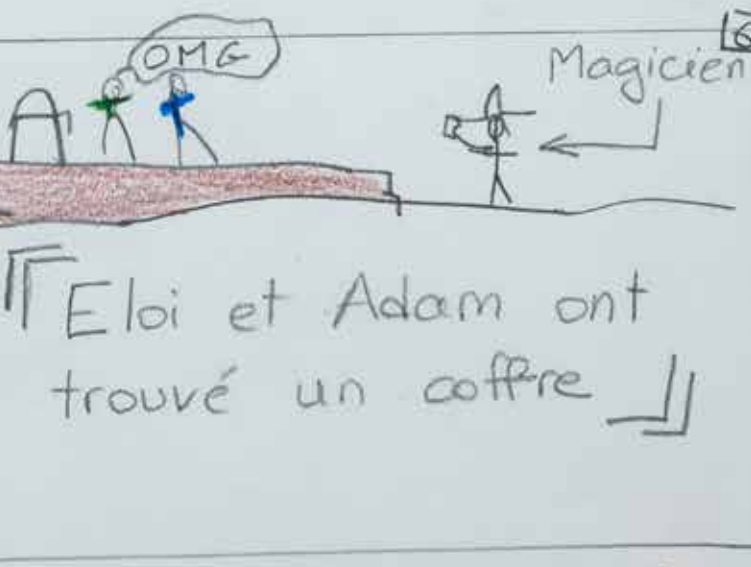 OMG
Magicien
『Eloi et Adam ont
trouvé un coffre』